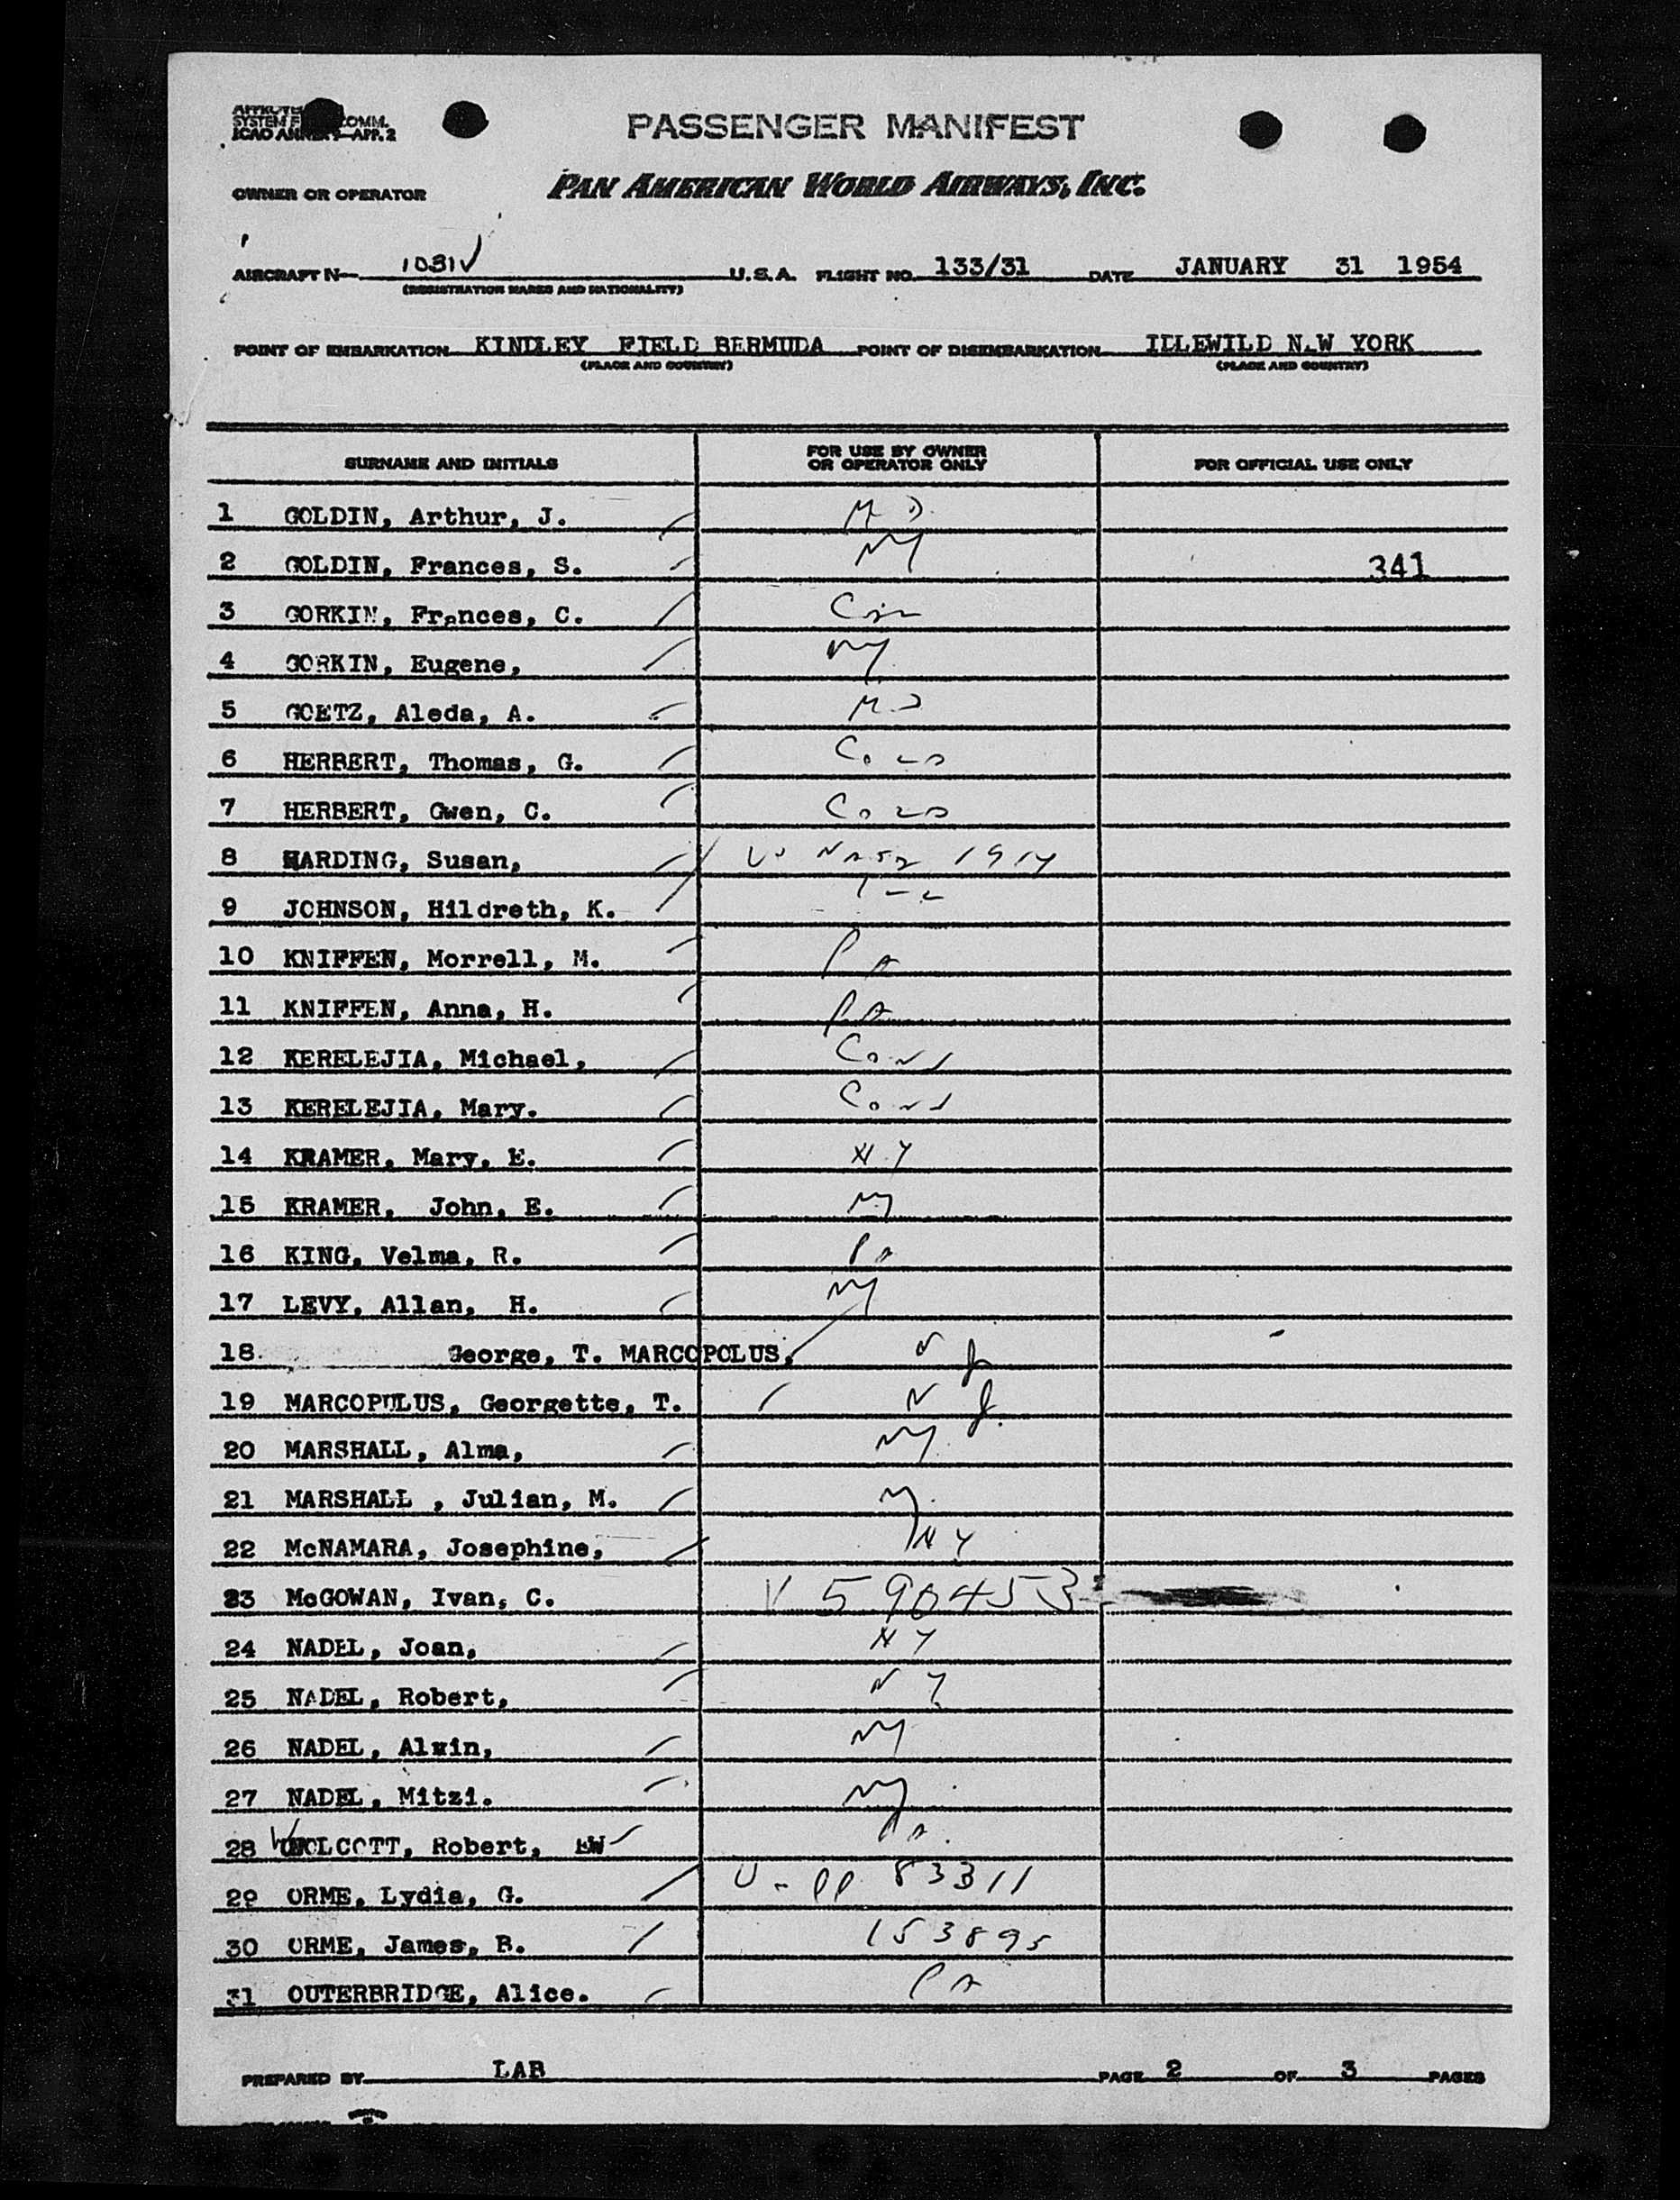 SYSTEM F COMM.
ICAO ANNEX 9-APP. 2
PASSENGER MANIFEST
OWNER OR OPERATOR PAN AMERICAN WORLD AIRWAYS, INC.
AIRCRAFT N- 1031V U.S.A. FLIGHT NO. 133/31 DATE JANUARY 31 1954
(REGISTRATION MARKS AND NATIONALITY)
POINT OF EMBARKATION KINDLEY FIELD BERMUDA POINT OF DISEMBARKATION IDLEWILD N.W YORK
(PLACE AND COUNTRY) (PLACE AND COUNTRY)
SURNAME AND INITIALS FOR USE BY OWNER OR OPERATOR ONLY FOR OFFICIAL USE ONLY
1 GOLDIN, Arthur, J.
2 GOLDIN, Frances, S. NY 341
3 GORKIN, Frances, C.
4 GORKIN, Eugene, NY
5 GOETZ, Aleda, A.
6 HERBERT, Thomas, G.
7 HERBERT, Gwen, C.
8 HARDING, Susan, 1914
9 JOHNSON, Hildreth, K.
10 KNIFFEN, Morrell, M. PA
11 KNIFFEN, Anna, H. PA
12 KERELEJIA, Michael, Conn
13 KERELEJIA, Mary. Conn
14 KRAMER, Mary, E. N.Y
15 KRAMER, John, E. NY
16 KING, Velma, R. Pa
17 LEVY, Allan, H. NY
18 George, T. MARCOPOLUS, N J
19 MARCOPULUS, Georgette, T. N J.
20 MARSHALL, Alma, NY.
21 MARSHALL , Julian, M. NY.
22 McNAMARA, Josephine, NY
23 McGOWAN, Ivan, C. V 590453
24 NADEL, Joan, NY
25 NADEL, Robert, NY
26 NADEL, Alwin, NY
27 NADEL, Mitzi. NY
28 WOLCOTT, Robert, EW Pa.
29 ORME, Lydia, G. 83311
30 ORME, James, B. 153895
31 OUTERBRIDGE, Alice. PA
PREPARED BY LAB PAGE 2 OF 3 PAGES